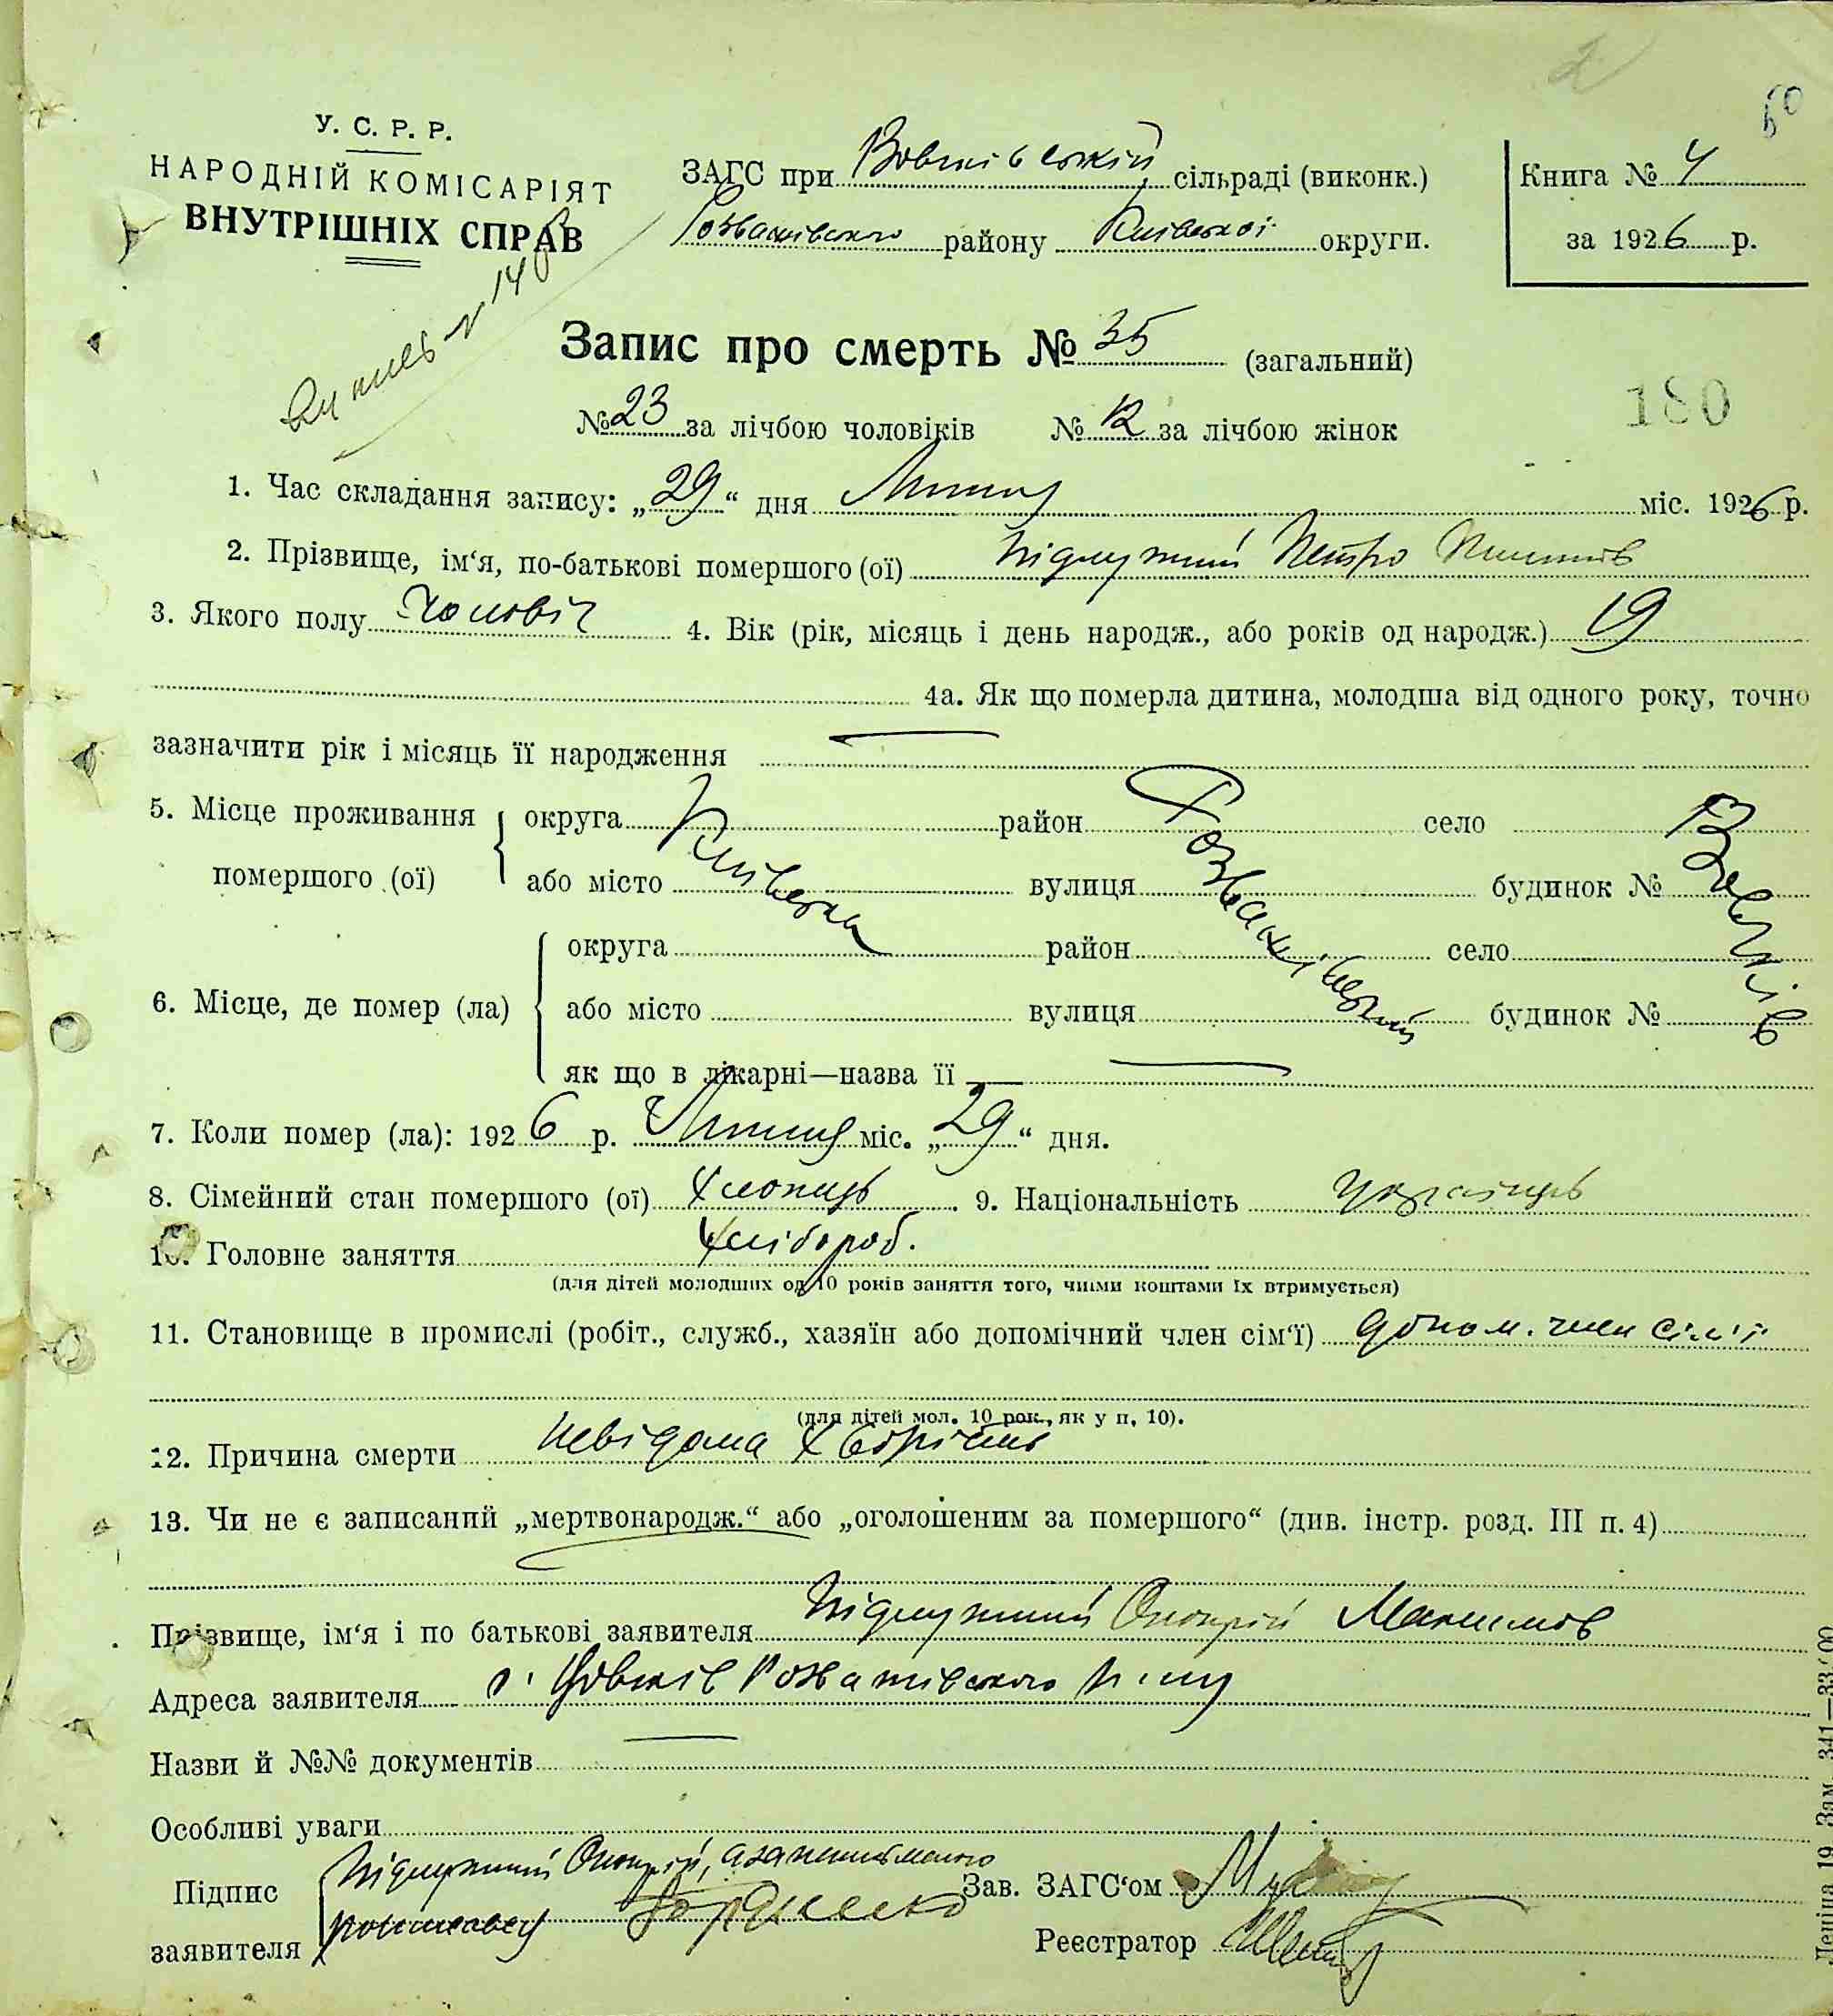 60
У. С. Р. Р.
НАРОДНІЙ КОМІСАРІЯТ
ВНУТРІШНІХ СПРАВ
ЗАГС при Вовчківській сільраді (виконк.)
Розважівського району Київської округи.
Книга № 4
за 1926 р.
Запис про смерть № 35 (загальний)
№ 23 за лічбою чоловіків № 12 за лічбою жінок
180
1. Час складання запису: „29“ дня Липня міс. 1926 р.
2. Прізвище, ім‘я, по-батькові помершого (ої) Підлужний Петро
3. Якого полу Чоловіч 4. Вік (рік, місяць і день народж., або років од народж.) 19
4а. Як що померла дитина, молодша від одного року, точно
зазначити рік і місяць її народження
5. Місце проживання помершого (ої) округа Київська район Розважівський село Вовчків
або місто вулиця будинок №
6. Місце, де помер (ла) округа район село
або місто вулиця будинок №
як що в лікарні—назва її —
7. Коли помер (ла): 1926 р. Липня міс. „29“ дня.
8. Сімейний стан помершого (ої) Хлопець. 9. Національність Українець
10. Головне заняття Хлібороб.
(для дітей молодших од 10 років заняття того, чиїми коштами їх втримується)
11. Становище в промислі (робіт., служб., хазяїн або допомічний член сім‘ї) допом. член сім'ї
(для дітей мол. 10 рок., як у п, 10).
12. Причина смерти невідома хворість
13. Чи не є записаний „мертвонародж.“ або „оголошеним за помершого“ (див. інстр. розд. III п. 4)
Прізвище, ім‘я і по батькові заявителя Підлужний Онопрій Максимов
Адреса заявителя с. Вовчків Розважівського
Назви й №№ документів
Особливі уваги
Підпис заявителя Підлужний Онопрій, а за неписьменого
розписавсь
Зав. ЗАГС‘ом
Реєстратор
Леніна 19 Зам. 341—33